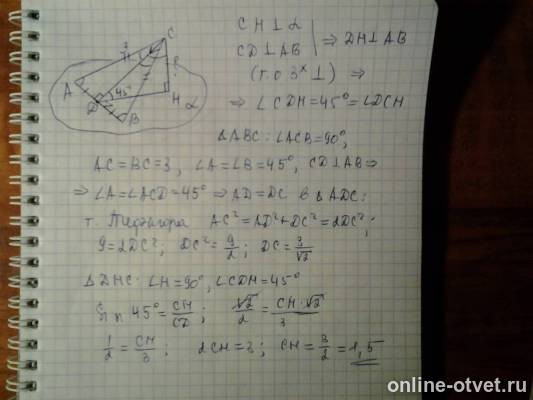 C
3
A
D
45°
B
H
α
CH ⊥ α
CD ⊥ AB | ⇒ DH ⊥ AB
(т. о 3ˣ ⊥) ⇒
⇒ ∠CDH = 45° = ∠DCH
ΔABC: ∠ACB = 90°,
AC = BC = 3, ∠A = ∠B = 45°, CD ⊥ AB ⇒
⇒ ∠A = ∠ACD = 45° ⇒ AD = DC в ΔADC:
т. Пифагора AC² = AD² + DC² = 2DC²;
9 = 2DC²; DC² = 9/2; DC = 3/√2
ΔDHC: ∠H = 90°, ∠CDH = 45°
Sin 45° = CH/CD; √2/2 = CH·√2/3
1/2 = CH/3; 2CH = 3; CH = 3/2 = 1,5
online-otvet.ru